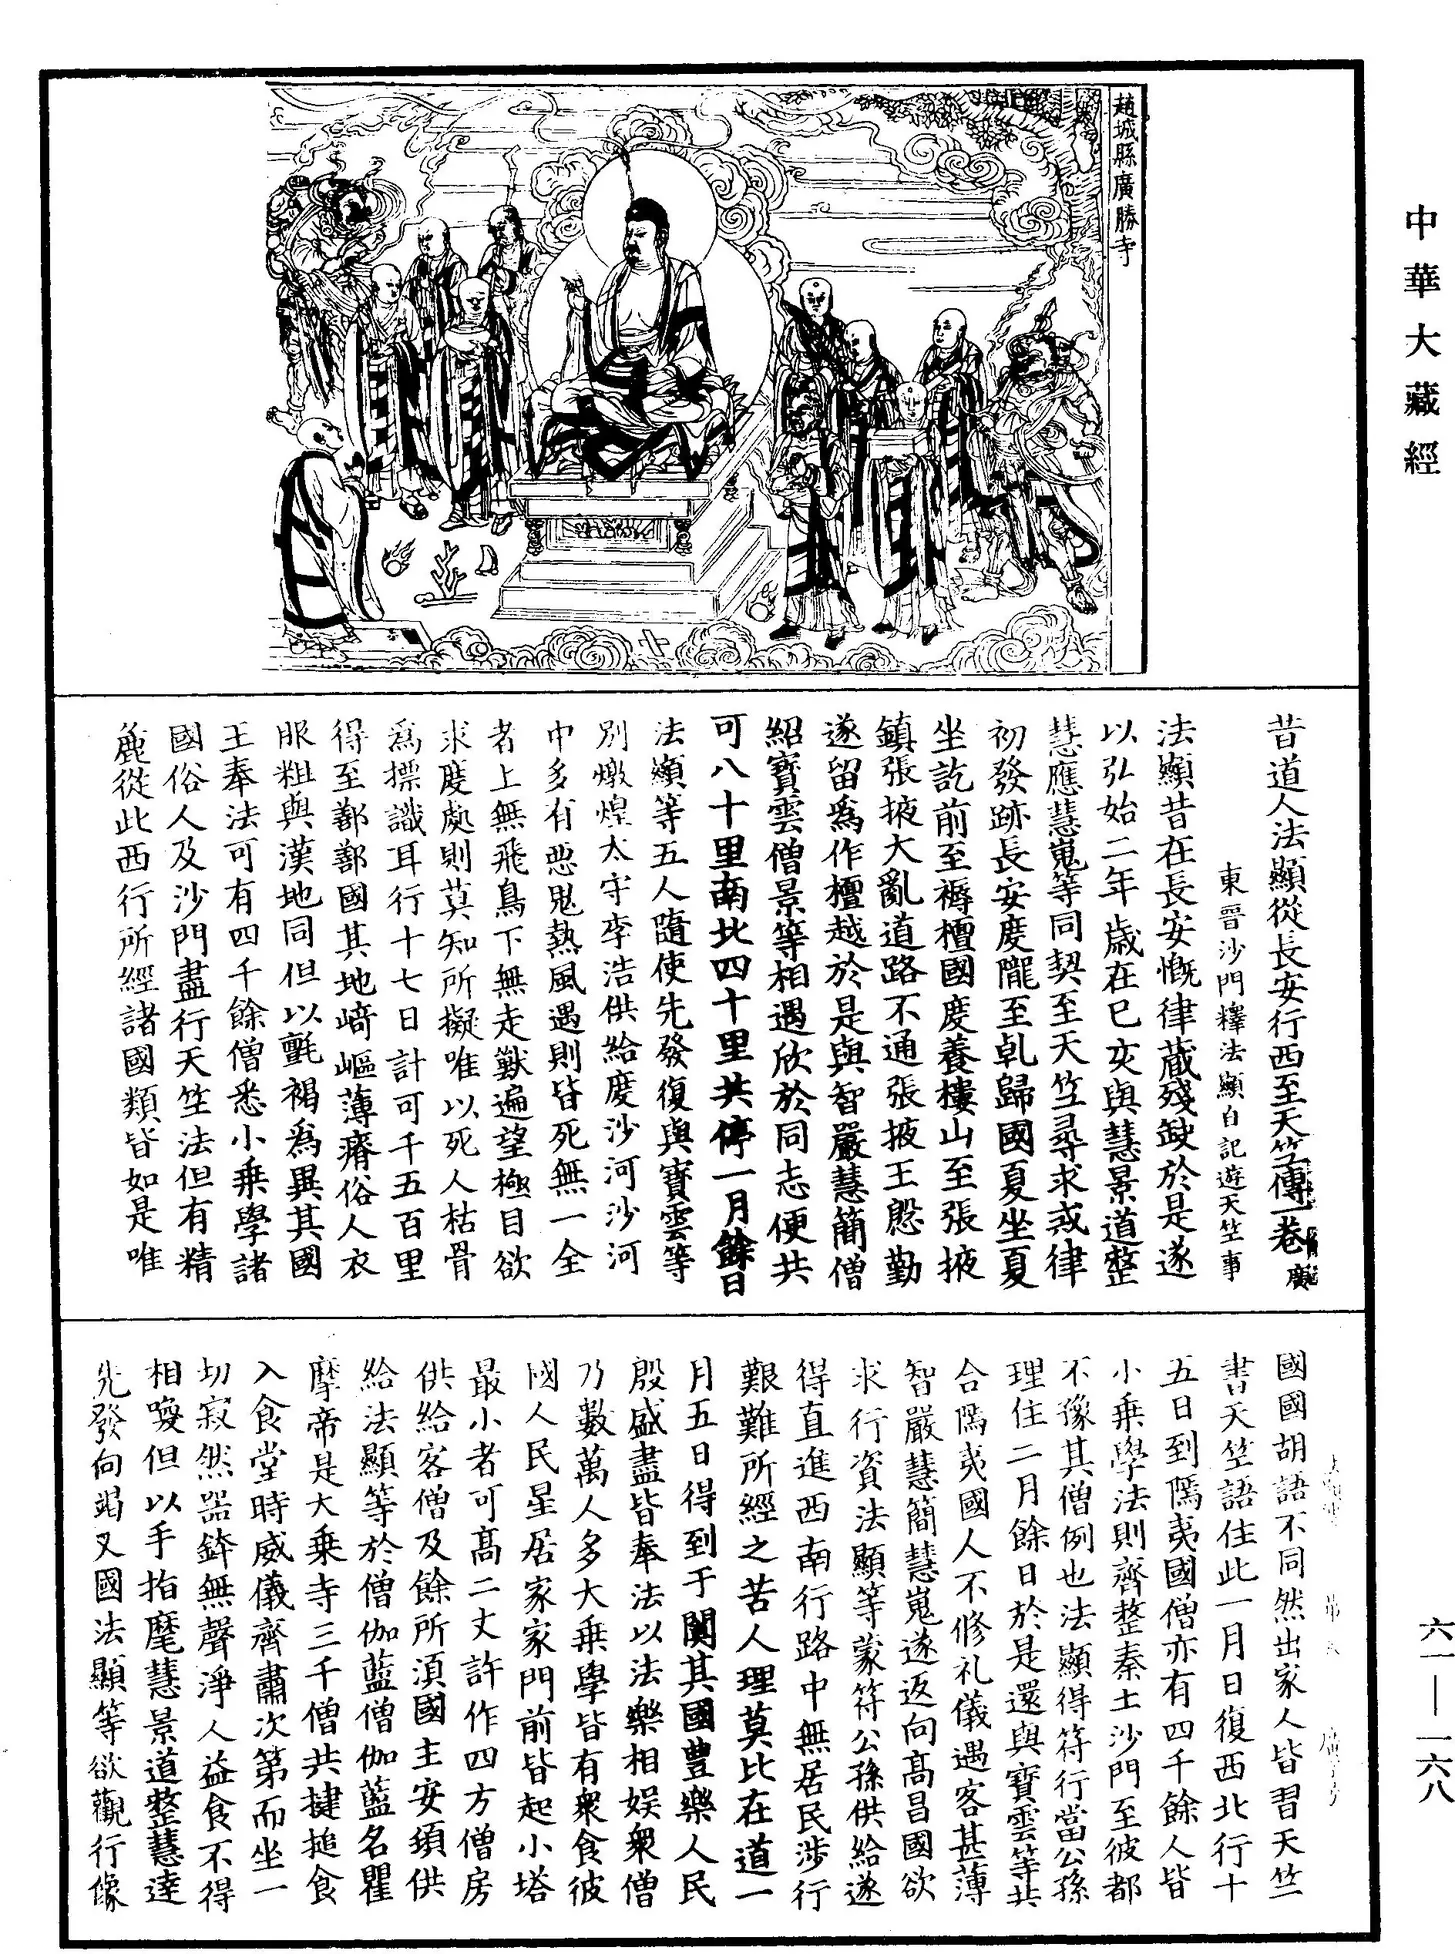 中華大藏經
趙城縣廣勝寺
昔道人法顯從長安行西至天竺傳一卷 廣
東晉沙門釋法顯自記遊天竺事
法顯昔在長安慨律藏殘缺於是遂
以弘始二年歲在己亥與慧景道整
慧應慧嵬等同契至天竺尋求戒律
初發跡長安度隴至乹歸國夏坐夏
坐訖前至褥檀國度養樓山至張掖
鎮張掖大亂道路不通張掖王慇勤
遂留爲作檀越於是與智嚴慧簡僧
紹寶雲僧景等相遇欣於同志便共
可八十里南北四十里共停一月餘日
法顯等五人隨使先發復與寶雲等
別燉煌太守李浩供給度沙河沙河
中多有惡鬼熱風遇則皆死無一全
者上無飛鳥下無走獸遍望極目欲
求度處則莫知所擬唯以死人枯骨
爲摽識耳行十七日計可千五百里
得至鄯鄯國其地﨑嶇薄瘠俗人衣
服粗與漢地同但以氈褐爲異其國
王奉法可有四千餘僧悉小乘學諸
國俗人及沙門盡行天竺法但有精
麁從此西行所經諸國類皆如是唯
國國胡語不同然出家人皆習天竺
書天竺語住此一月日復西北行十
五日到隝夷國僧亦有四千餘人皆
小乘學法則齊整秦土沙門至彼都
不豫其僧例也法顯得符行當公孫
理住二月餘日於是還與寶雲等共
合隝夷國人不修礼儀遇客甚薄
智嚴慧簡慧嵬遂返向高昌國欲
求行資法顯等蒙符公孫供給遂
得直進西南行路中無居民涉行
艱難所經之苦人理莫比在道一
月五日得到于闐其國豊樂人民
殷盛盡皆奉法以法樂相娛衆僧
乃數萬人多大乘學皆有衆食彼
國人民星居家家門前皆起小塔
最小者可高二丈許作四方僧房
供給客僧及餘所湏國主安頓供
給法顯等於僧伽藍僧伽藍名瞿
摩帝是大乘寺三千僧共揵搥食
入食堂時威儀齊肅次第而坐一
切寂然器鉢無聲淨人益食不得
相喚但以手指麾慧景道整慧達
先發向竭叉國法顯等欲觀行像
六一—一六八